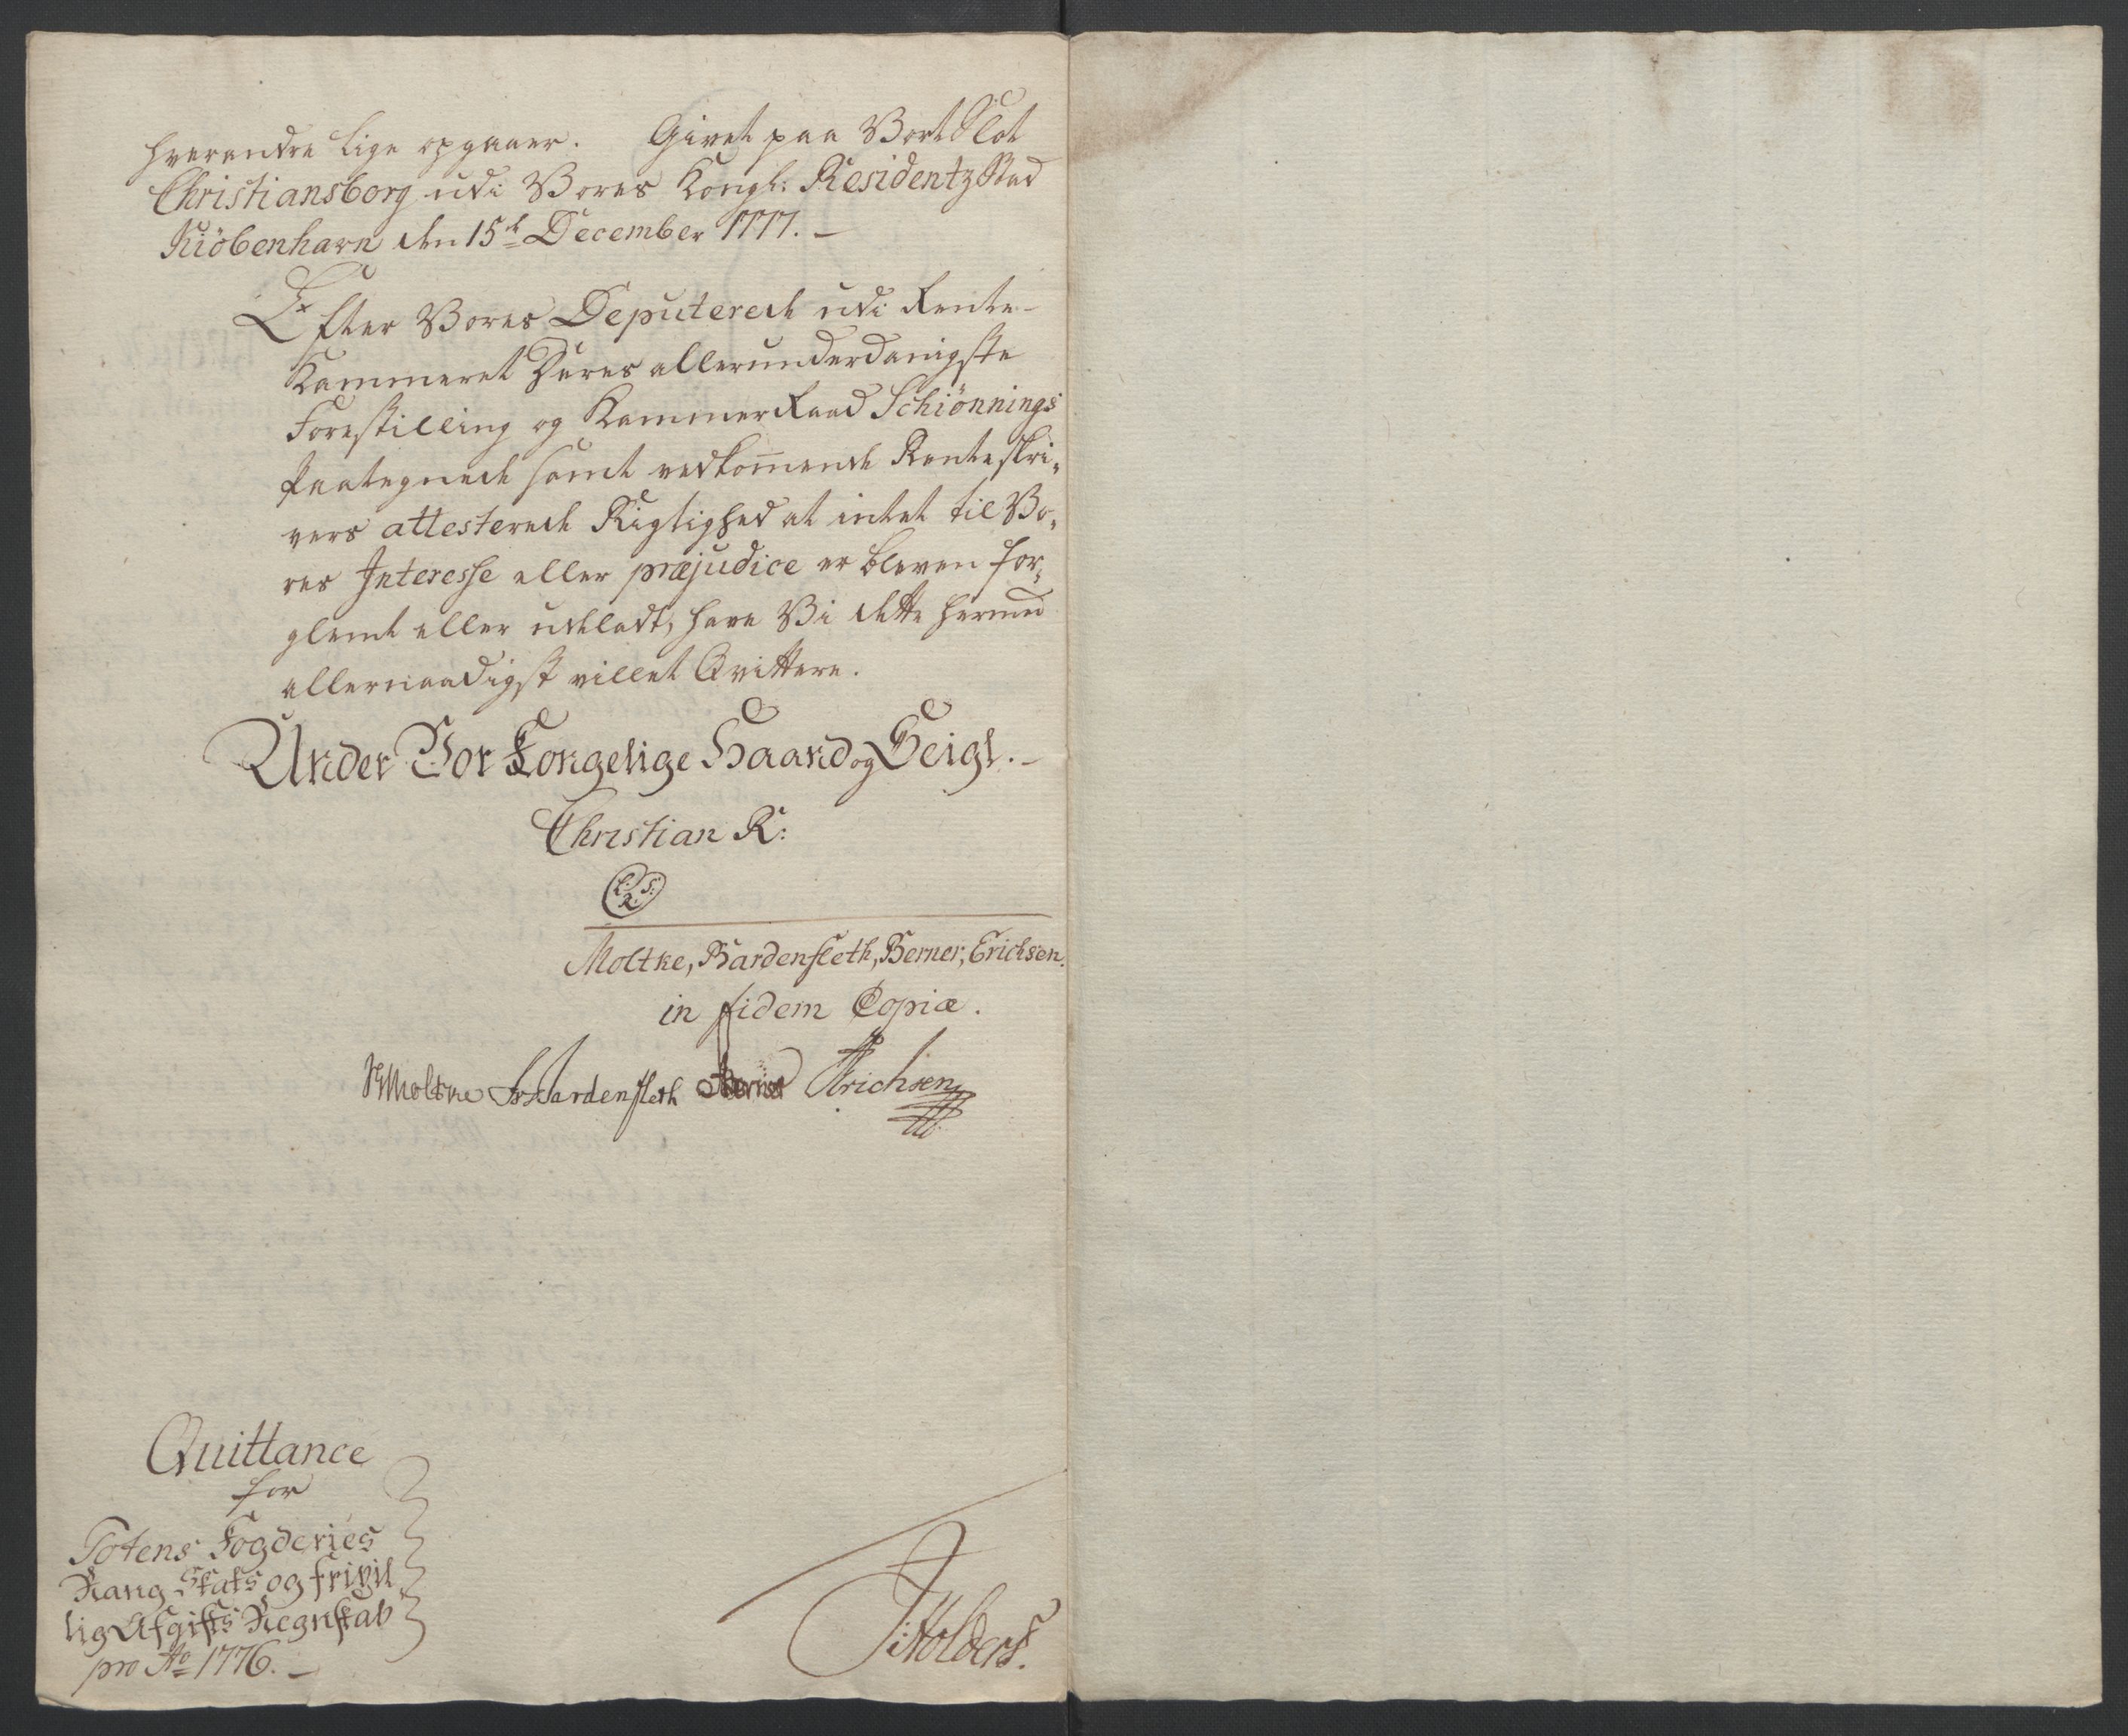 hverandre lige opgaaer. Givet paa Vort Slot
Christiansborg udi Vores Kongl: Residentz Stad
Kiöbenhavn den 15de December 1777. –
Efter Vores Deputerede udi Rente-
Kammeret Deres allerunderdanigste
Forestilling og Kammer Raad Schiönnings
Paategnede samt vedkommende Renteskri„
vers attesterede Rigtighed at intet til Vo„
res Interesse eller præjudice er bleven for„
glemt eller udeladt, have Vi dette hermed
allernaadigst villet Qvittere.
Under Vor Kongelige Haand og Seigl. –
Christian R:
L. S.
R.
Moltke, Bardenfleth, Berner, Erichsen.
in fidem Copiæ.
Moltke Bardenfleth Berner Erichsen
Quittance
for
Totens Fogderies
Rang Skats og frivil
lig Afgifts Regnskab
pro Ao 1776. –